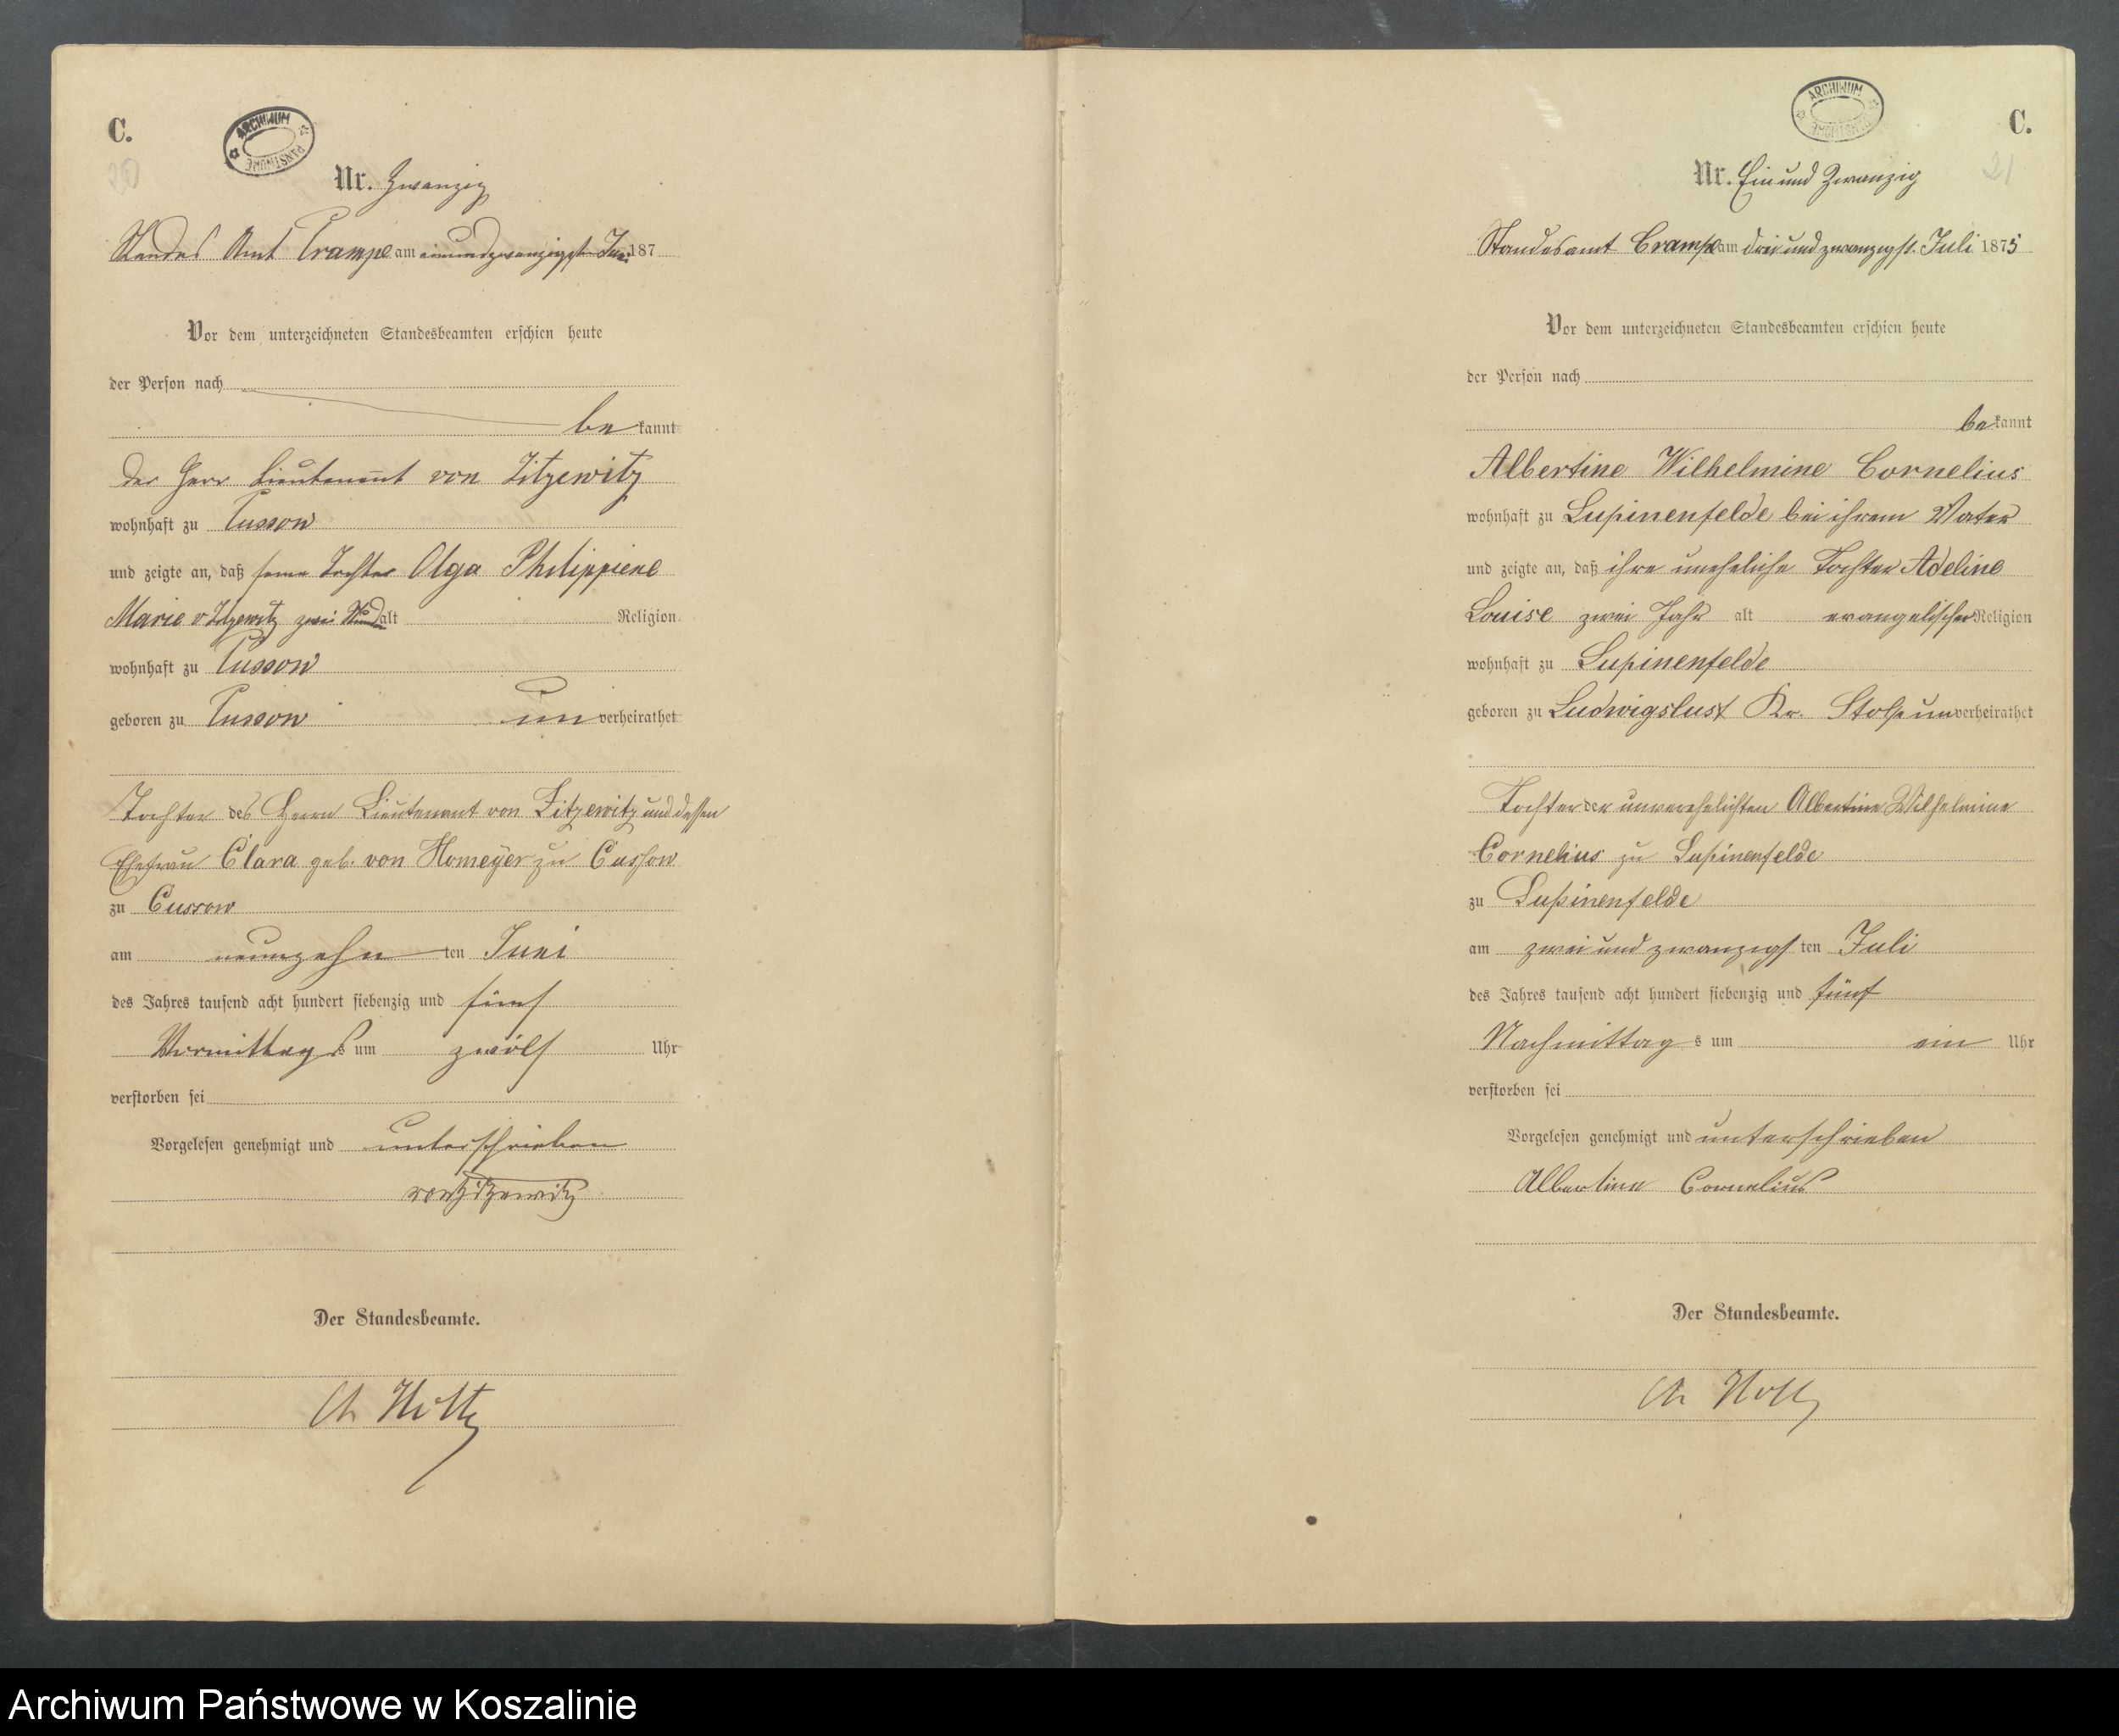 C.
ARCHIWUM PAŃSTWOWE
20
Nr. Zwanzig
Standes Amt Crampe am einundzwanzigst. Juni 187
Vor dem unterzeichneten Standesbeamten erschien heute
der Person nach
be kannt
der Herr Lieutenant von Zitzewitz
wohnhaft zu Cussow
und zeigte an, daß seine Tochter Olga Philippiene
Marie v Zitzewitz zwei Stund alt Religion
wohnhaft zu Cussow
geboren zu Cussow un verheirathet
Tochter des Herrn Lieutenant von Zitzewitz und dessen
Ehefrau Clara geb. von Homeyer zu Cussow
zu Cussow
am neunzehn ten Juni
des Jahres tausend acht hundert siebenzig und fünf
Vormittags um zwölf Uhr
verstorben sei
Vorgelesen genehmigt und unterschrieben
von Zitzewitz
Der Standesbeamte.
C.
ARCHIWUM PAŃSTWOWE
21
Nr. Ein und Zwanzig
Standesamt Crampe am drei und zwanzigst. Juli 1875
Vor dem unterzeichneten Standesbeamten erschien heute
der Person nach
be kannt
Albertine Wilhelmine Cornelius
wohnhaft zu Lupinenfelde bei ihrem Vater
und zeigte an, daß ihre uneheliche Tochter Adeline
Louise zwei Jahr alt evangelischer Religion
wohnhaft zu Lupinenfelde
geboren zu Ludwigslust Kr. Stolp un verheirathet
Tochter der unverehelichten Albertine Wilhelmine
Cornelius zu Lupinenfelde
zu Lupinenfelde
am zwei und zwanzigs ten Juli
des Jahres tausend acht hundert siebenzig und fünf
Nachmittag s um ein Uhr
verstorben sei
Vorgelesen genehmigt und unterschrieben
Albertine Cornelius
Der Standesbeamte.
Archiwum Państwowe w Koszalinie